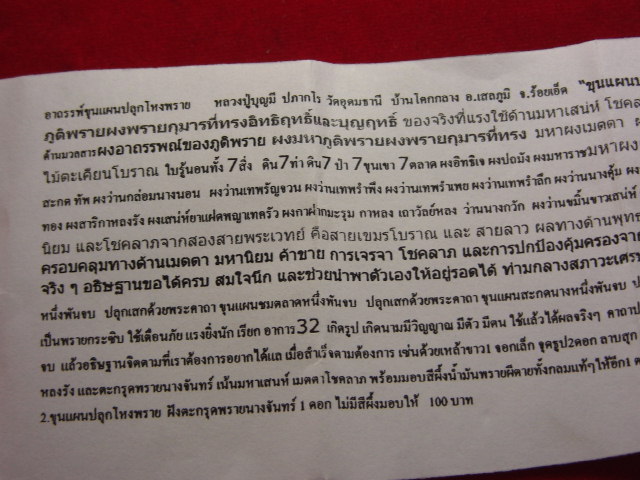 อาถรรพ์ขุนแผนปลุกโหงพราย หลวงปู่บุญมี ปภากโร วัดอุดมธานี บ้านโคกกลาง อ.เสลภูมิ จ.ร้อยเอ็ด "ขุนแผนป
ภูติพรายผงพรายกุมารที่ทรงอิทธิฤทธิ์และบุญฤทธิ์ ของจริงที่แรงใช้ด้านมหาเสน่ห์ โชคล
ด้านมวลสารผงอาถรรพณ์ของภูติพราย ผงมหาภูติพรายผงพรายกุมารที่ทรง มหาผงเมตตา
ไม้ตะเคียนโบราณ ใบรู้นอนทั้ง 7สิ่ง ดิน7ท่า ดิน7 ป่า 7ขุนเขา 7ตลาด ผงอิทธิเจ ผงปถมัง ผงมหาราชมหาผง
สะกด ทัพ ผงว่านกล่อมนางนอน ผงว่านเทพรัญจวน ผงว่านเทพรำพึง ผงว่านเทพรำเพย ผงว่านเทพรำลึก ผงว่านนางคุ้ม ผง
ทอง ผงสาริกาหลงรัง ผงเสน่ห์ยาแฝดพญาเทครัว ผงกาฝากมะรุม กาหลง เถาวัลย์หลง ว่านนางกวัก ผงว่านขมิ้นขาวเสน่ห์
นิยม และโชคลาภจากสองสายพระเวทย์ คือสายเขมรโบราณ และ สายลาว ผลทางด้านพุทธ
ครอบคลุมทางด้านเมตตา มหานิยม ค้าขาย การเจรจา โชคลาภ และการปกป้องคุ้มครองจาก
จริง ๆ อธิษฐานขอได้ครบ สมใจนึก และช่วยนำพาตัวเองให้อยู่รอดได้ ท่ามกลางสภาวะเศร
หนึ่งพันจบ ปลุกเสกด้วยพระคาถา ขุนแผนชมตลาดหนึ่งพันจบ ปลุกเสกด้วยพระคาถา ขุนแผนสะกดนางหนึ่งพันจบ ป
เป็นพรายกระซิบ ใช้เตือนภัย แรงยิ่งนัก เรียก อาการ32 เกิดรูป เกิดนามมีวิญญาณ มีตัว มีตน ใช้แล้วได้ผลจริงๆ คาถาป
จบ แล้วอธิษฐานจิตตามที่เราต้องการอยากได้แล เมื่อสำเร็จตามต้องการ เซ่นด้วยเหล้าขาว1 จอกเล็ก จุดธูป2ดอก ลาบสุก
หลงรัง และตะกรุดพรายนางจันทร์ เน้นมหาเสน่ห์ เมตตาโชคลาภ พร้อมมอบสีผึ้งน้ำมันพรายผีตายทั้งกลมแท้ๆให้อีก1
2.ขุนแผนปลุกโหงพราย ฝังตะกรุดพรายนางจันทร์ 1 ดอก ไม่มีสีผึ้งมอบให้ 100 บาท